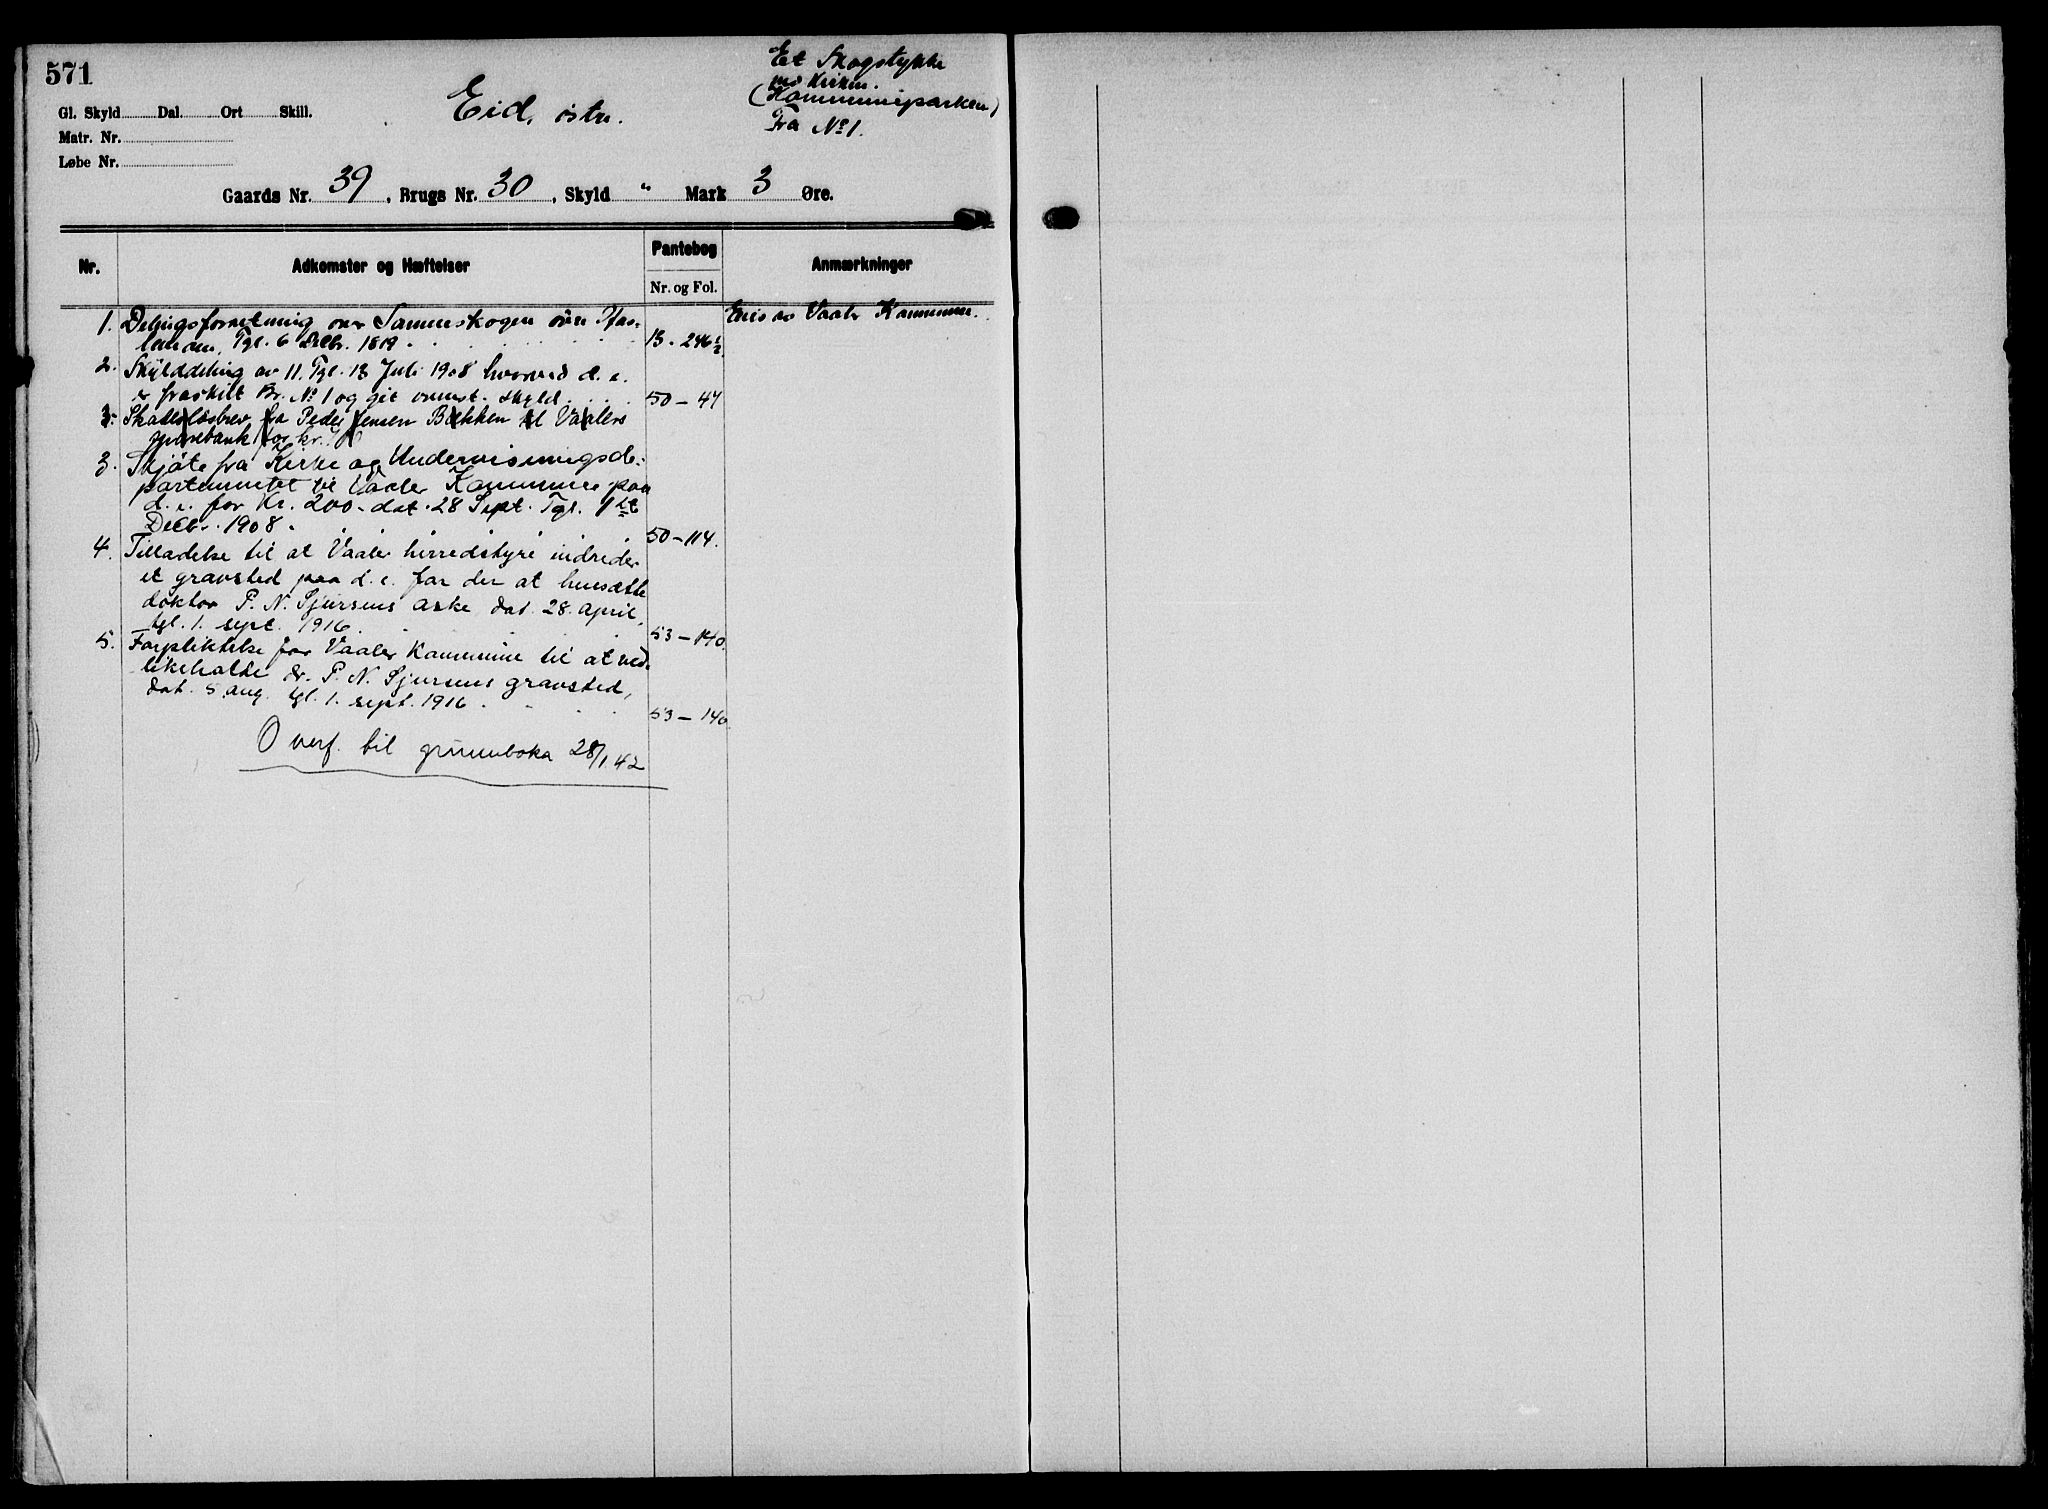 571
Et Skogstykke
ved Kirken.
(Kommuneparken)
Fra No 1.
Eid, østre.
Gl. Skyld Dal. Ort Skill.
Matr. Nr.
Løbe Nr.
Gaards Nr. 39, Brugs Nr. 30, Skyld " Mark 3 Øre.
Nr. Adkomster og Hæftelser Pantebog Anmærkninger
Nr. og Fol.
Eies av Vaaler Kommune.
1. Delingsforretning over Sameskogen
Tgl. 6 Decbr. 1819 B. 246 1/2
2. Skylddeling av 11. Tgl. 13 Juli 1908 hvorved d. e.
er fraskilt Br. No 1 og git ovenst. skyld 50 - 47
3. Skadesløsbrev fra Peder Jensen Bakken til Vaalers
sparebank for kr.
3. Skjøte fra Kirke og Undervisningsde-
partementet til Vaaler Kommune paa
d. e. for Kr. 200 - dat. 28 Sept. Tgl. 1ste
Decbr. 1908. 50 - 114.
4. Tilladelse til at Vaaler herredstyre indreder
et gravsted paa d. e. for der at hensætte
doktor P. N. Sjursens aske, dat. 28. april,
tgl. 1. sept. 1916 53 - 140.
5. Forpliktelse for Vaaler Kommune til at ved-
likeholde dr. P. N. Sjursens gravsted,
dat. 5 aug. tgl. 1. sept. 1916 53 - 140.
Overf. til grunnboka 28/1.42